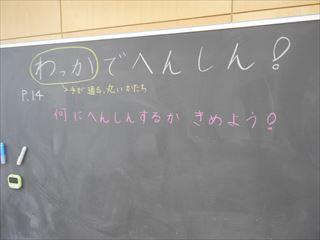 わっかでへんしん!
P.14
>手が通る、丸いかたち
何にへんしんするか きめよう!